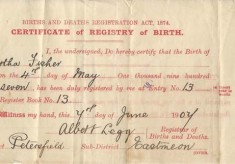 BIRTHS AND DEATHS REGISTRATION ACT, 1874.
CERTIFICATE OF REGISTRY OF BIRTH.
I, the undersigned, Do hereby certify that the Birth of
tha Fisher
on the 4th day of May One thousand nine hundred
seven has been duly registered by me at Entry No. 13
Register Book No. 13.
Witness my hand, this 7th day of June 1907
Albert Legg Registrar of
Births and Deaths.
Petersfield Sub-District Eastmeon